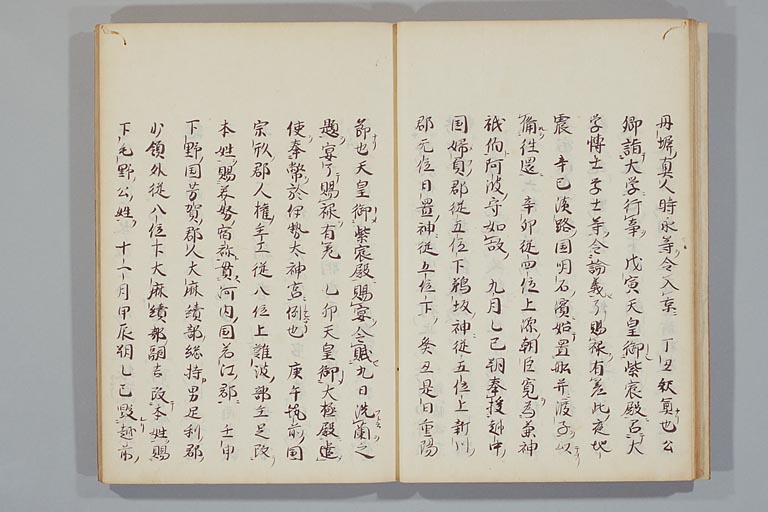 丹墀真人時永等令入京丁丑釈奠也公
卿詣大学行事戊寅天皇御紫宸殿召大
学博士学士等令論義引賜禄有差此夜地
震辛巳淡路国明石濱始置船并渡子以
備往還辛卯従四位上源朝臣寛為兼神
祇伯阿波守如故九月乙巳朔奉授越中
国婦負郡従五位下鵜坂神従五位上新川
郡无位日置神従五位下癸丑是日重陽
節也天皇御紫宸殿賜宴令賦九日洗蘭之
題宴了賜禄有差乙卯天皇御大極殿遣
使奉幣於伊勢太神宮例也庚午筑前国
宗形郡人権主工従八位上難波部主足改
本姓賜美努宿祢貫河内国若江郡壬申
下野国芳賀郡人大麻績部総持男足利郡
少領外従八位下大麻績部嗣吉改本姓賜
下毛野公姓十一月甲辰朔乙巳毀越前